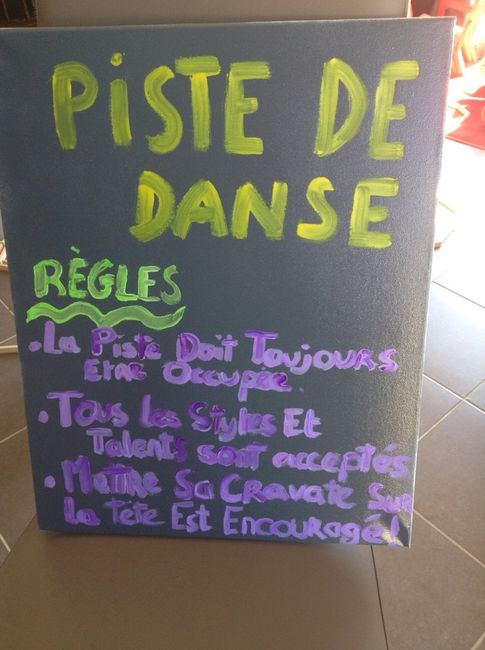 PISTE DE
DANSE
RÈGLES
• La Piste Doit Toujours
Etre Occupée.
• Tous les Styles Et
Talents sont acceptés
• Mettre Sa Cravate Sur
La tête Est Encouragé!